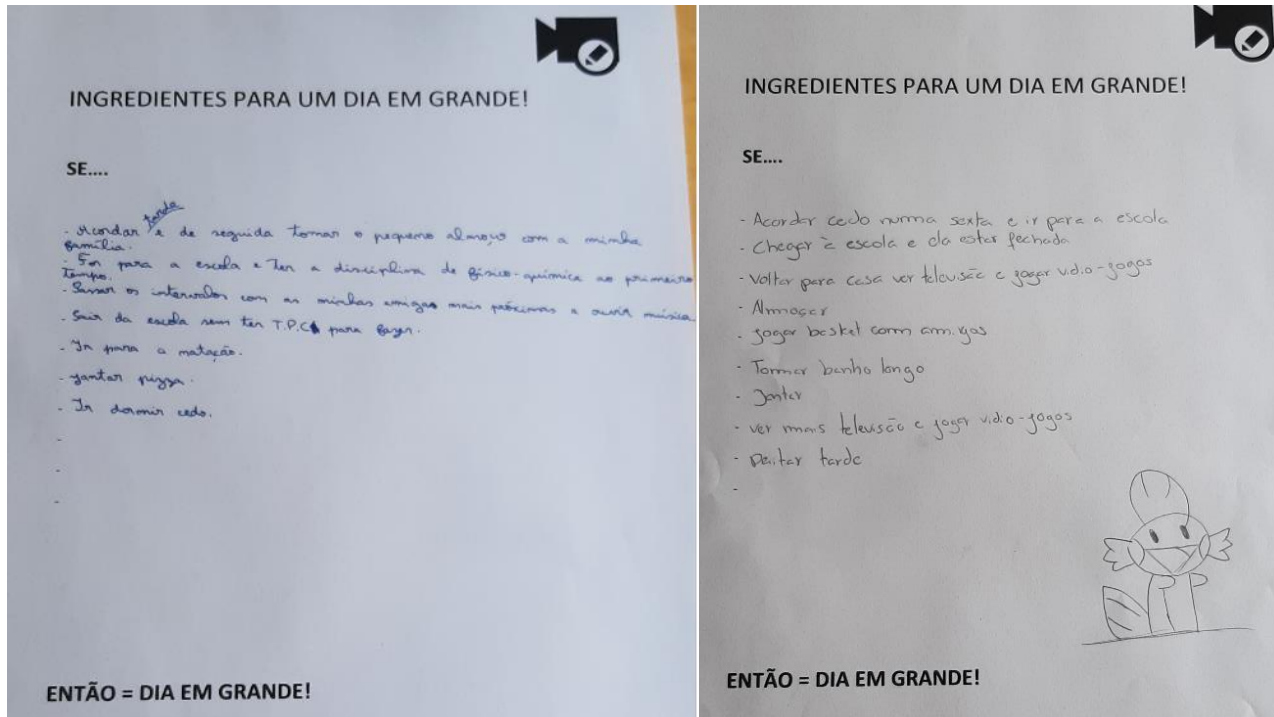 INGREDIENTES PARA UM DIA EM GRANDE!
SE....
tarde
- Acordar e de seguida tomar o pequeno almoço com a minha
família.
- Ir para a escola e ter a disciplina de físico-química ao primeiro
tempo.
- Passar os intervalos com as minhas amigas mais próximas a ouvir música
- Sair da escola sem ter T.P.C para fazer.
- Ir para a natação.
- Jantar pizza.
- Ir dormir cedo.
-
-
-
ENTÃO = DIA EM GRANDE!
INGREDIENTES PARA UM DIA EM GRANDE!
SE....
- Acordar cedo numa sexta e ir para a escola
- Chegar à escola e ela estar fechada
- Voltar para casa ver televisão e jogar vidio-jogos
- Almoçar
- jogar basket com amigos
- Tomar banho longo
- Jantar
- ver mais televisão e jogar vidio-jogos
- Deitar tarde
-
ENTÃO = DIA EM GRANDE!